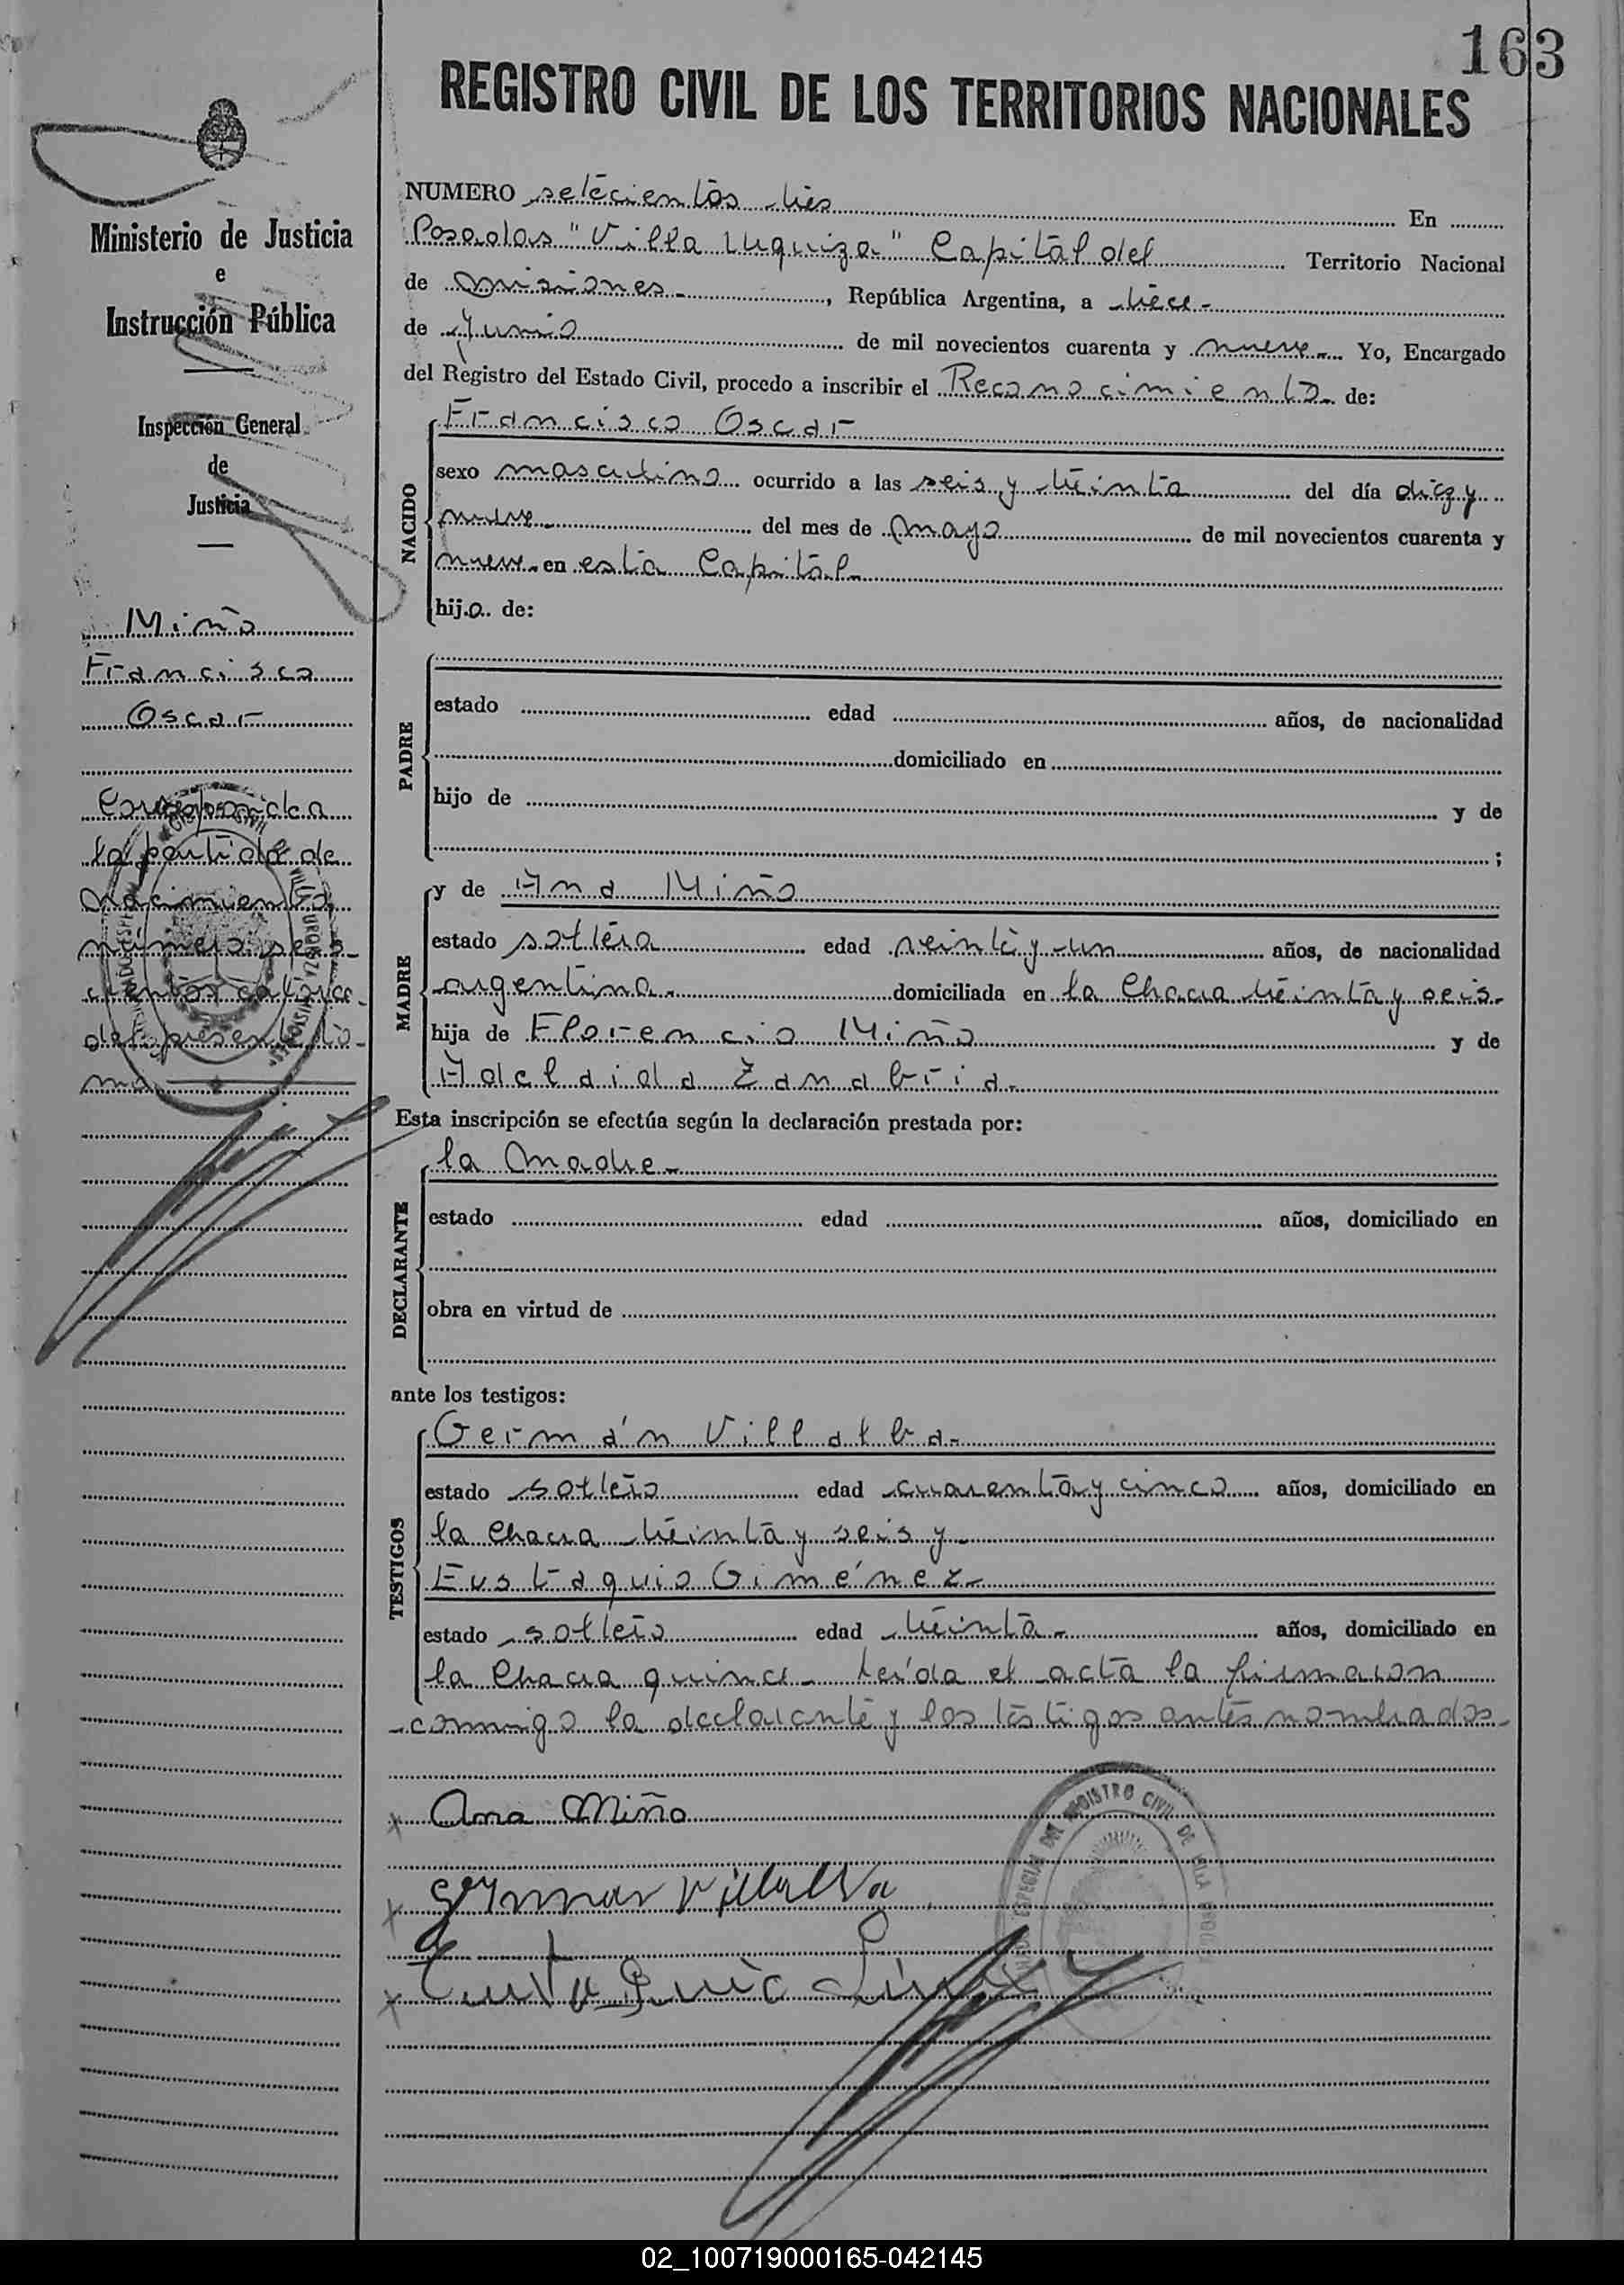 163
REGISTRO CIVIL DE LOS TERRITORIOS NACIONALES
Ministerio de Justicia
e
Instrucción Pública
Inspección General
de
Justicia
Miño
Francisco
Oscar
Corresponde a
la partida de
Nacimiento
número seis-
cientos catorce
del presente to-
mo
NUMERO setecientos tres En
Posadas "Villa Urquiza" Capital del Territorio Nacional
de Misiones, República Argentina, a trece
de Junio de mil novecientos cuarenta y nueve Yo, Encargado
del Registro del Estado Civil, procedo a inscribir el Reconocimiento de:
NACIDO
Francisco Oscar
sexo masculino ocurrido a las seis y treinta del día diez y
nueve del mes de Mayo de mil novecientos cuarenta y
nueve en esta Capital
hijo de:
PADRE
estado edad años, de nacionalidad
domiciliado en
hijo de y de
;
MADRE
y de Ana Miño
estado soltera edad veinte y un años, de nacionalidad
argentina domiciliada en la Chacra treinta y seis
hija de Florencio Miño y de
Adelaida Zanabria
Esta inscripción se efectúa según la declaración prestada por:
DECLARANTE
la Madre
estado edad años, domiciliado en
obra en virtud de
ante los testigos:
TESTIGOS
Germán Villalba
estado soltero edad cuarenta y cinco años, domiciliado en
la Chacra treinta y seis y
Eustaquio Giménez
estado soltero edad treinta años, domiciliado en
la Chacra quince leída el acta la firmaron
conmigo la declarante y los testigos antes nombrados
Ana Miño
German Villalva
REGISTRO CIVIL DE VILLA URQUIZA
02_100719000165-042145